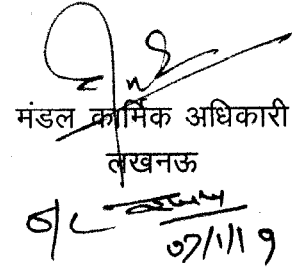 मंडल कार्मिक अधिकारी
लखनऊ
07/1/19